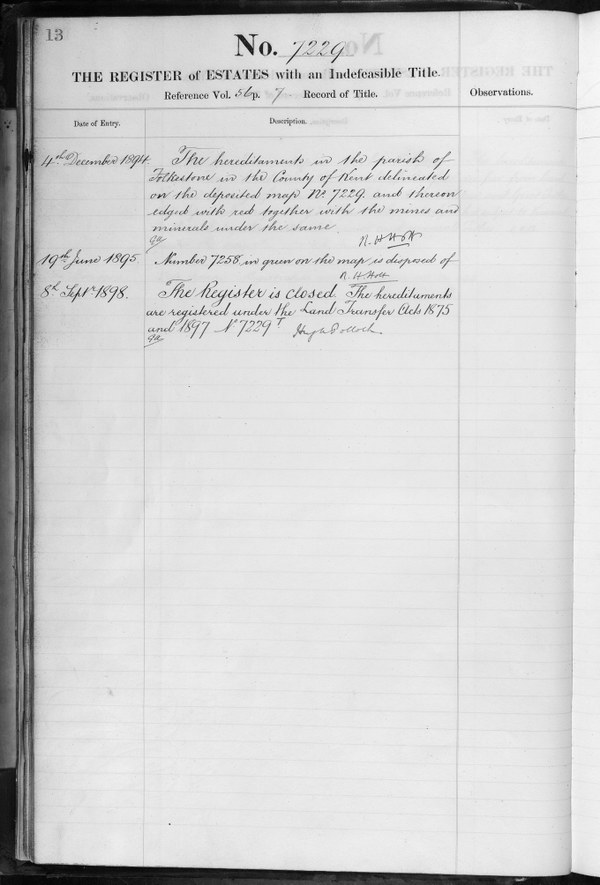 13
No. 7229
THE REGISTER of ESTATES with an Indefeasible Title.
Reference Vol. 56 p. 7 Record of Title.
Observations.
Date of Entry.
Description.
4th December 1894. The hereditaments in the parish of
Folkestone in the County of Kent delineated
on the deposited map No. 7229 and thereon
edged with red together with the mines and
minerals under the same.
R. H. Holt
19th June 1895. Number 7258 in green on the map is disposed of
R. H. Holt
8th Septr. 1898. The Register is closed. The hereditaments
are registered under the Land Transfer Acts 1875
and 1897 No 7229 T
Hugh Pollock